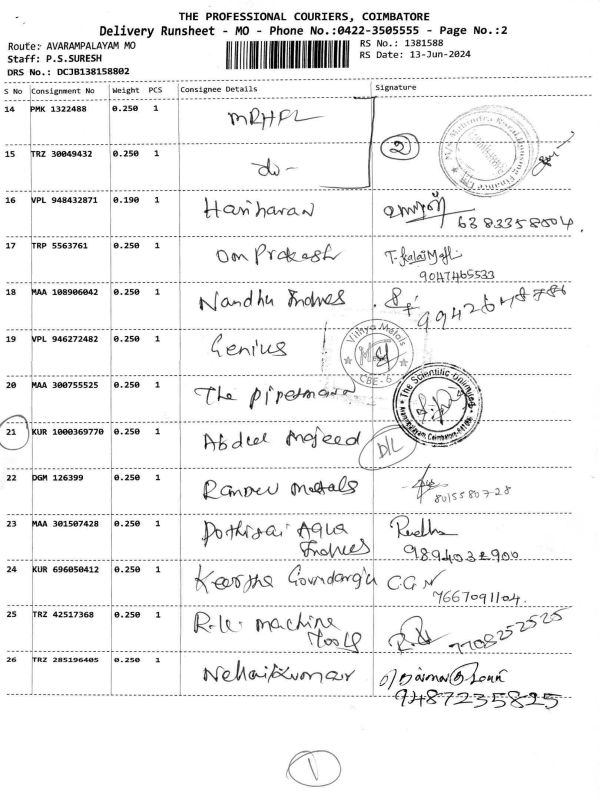 THE PROFESSIONAL COURIERS, COIMBATORE
Delivery Runsheet - MO - Phone No.:0422-3505555 - Page No.:2
Route: AVARAMPALAYAM MO RS No.: 1381588
Staff: P.S.SURESH RS Date: 13-Jun-2024
DRS No.: DCJB138158802
S No Consignment No Weight PCS Consignee Details Signature
14 PMK 1322488 0.250 1 MRHFL
15 TRZ 30049432 0.250 1 do- 2
16 VPL 948432871 0.190 1 Hariharan
6383358004.
17 TRP 5563761 0.250 1 Om Prakash
9047465533
18 MAA 108906042 0.250 1 Nandhu Indues
19 VPL 946272482 0.250 1 Genius
Vithya Metals
CBE-6
20 MAA 300755525 0.250 1 The
The Scientific Unlimited
21 KUR 1000369770 0.250 1 Abdul Majeed D/L
22 DGM 126399 0.250 1 Metals
8015580728
23 MAA 301507428 0.250 1 Pothigai Aqua Radha
Indues 9894032900
24 KUR 696050412 0.250 1 C.G.N
7667091104.
25 TRZ 42517368 0.250 1 R.K. machine
Tools 7708252525
26 TRZ 285196405 0.250 1 Nehaikumar
9487235825
1